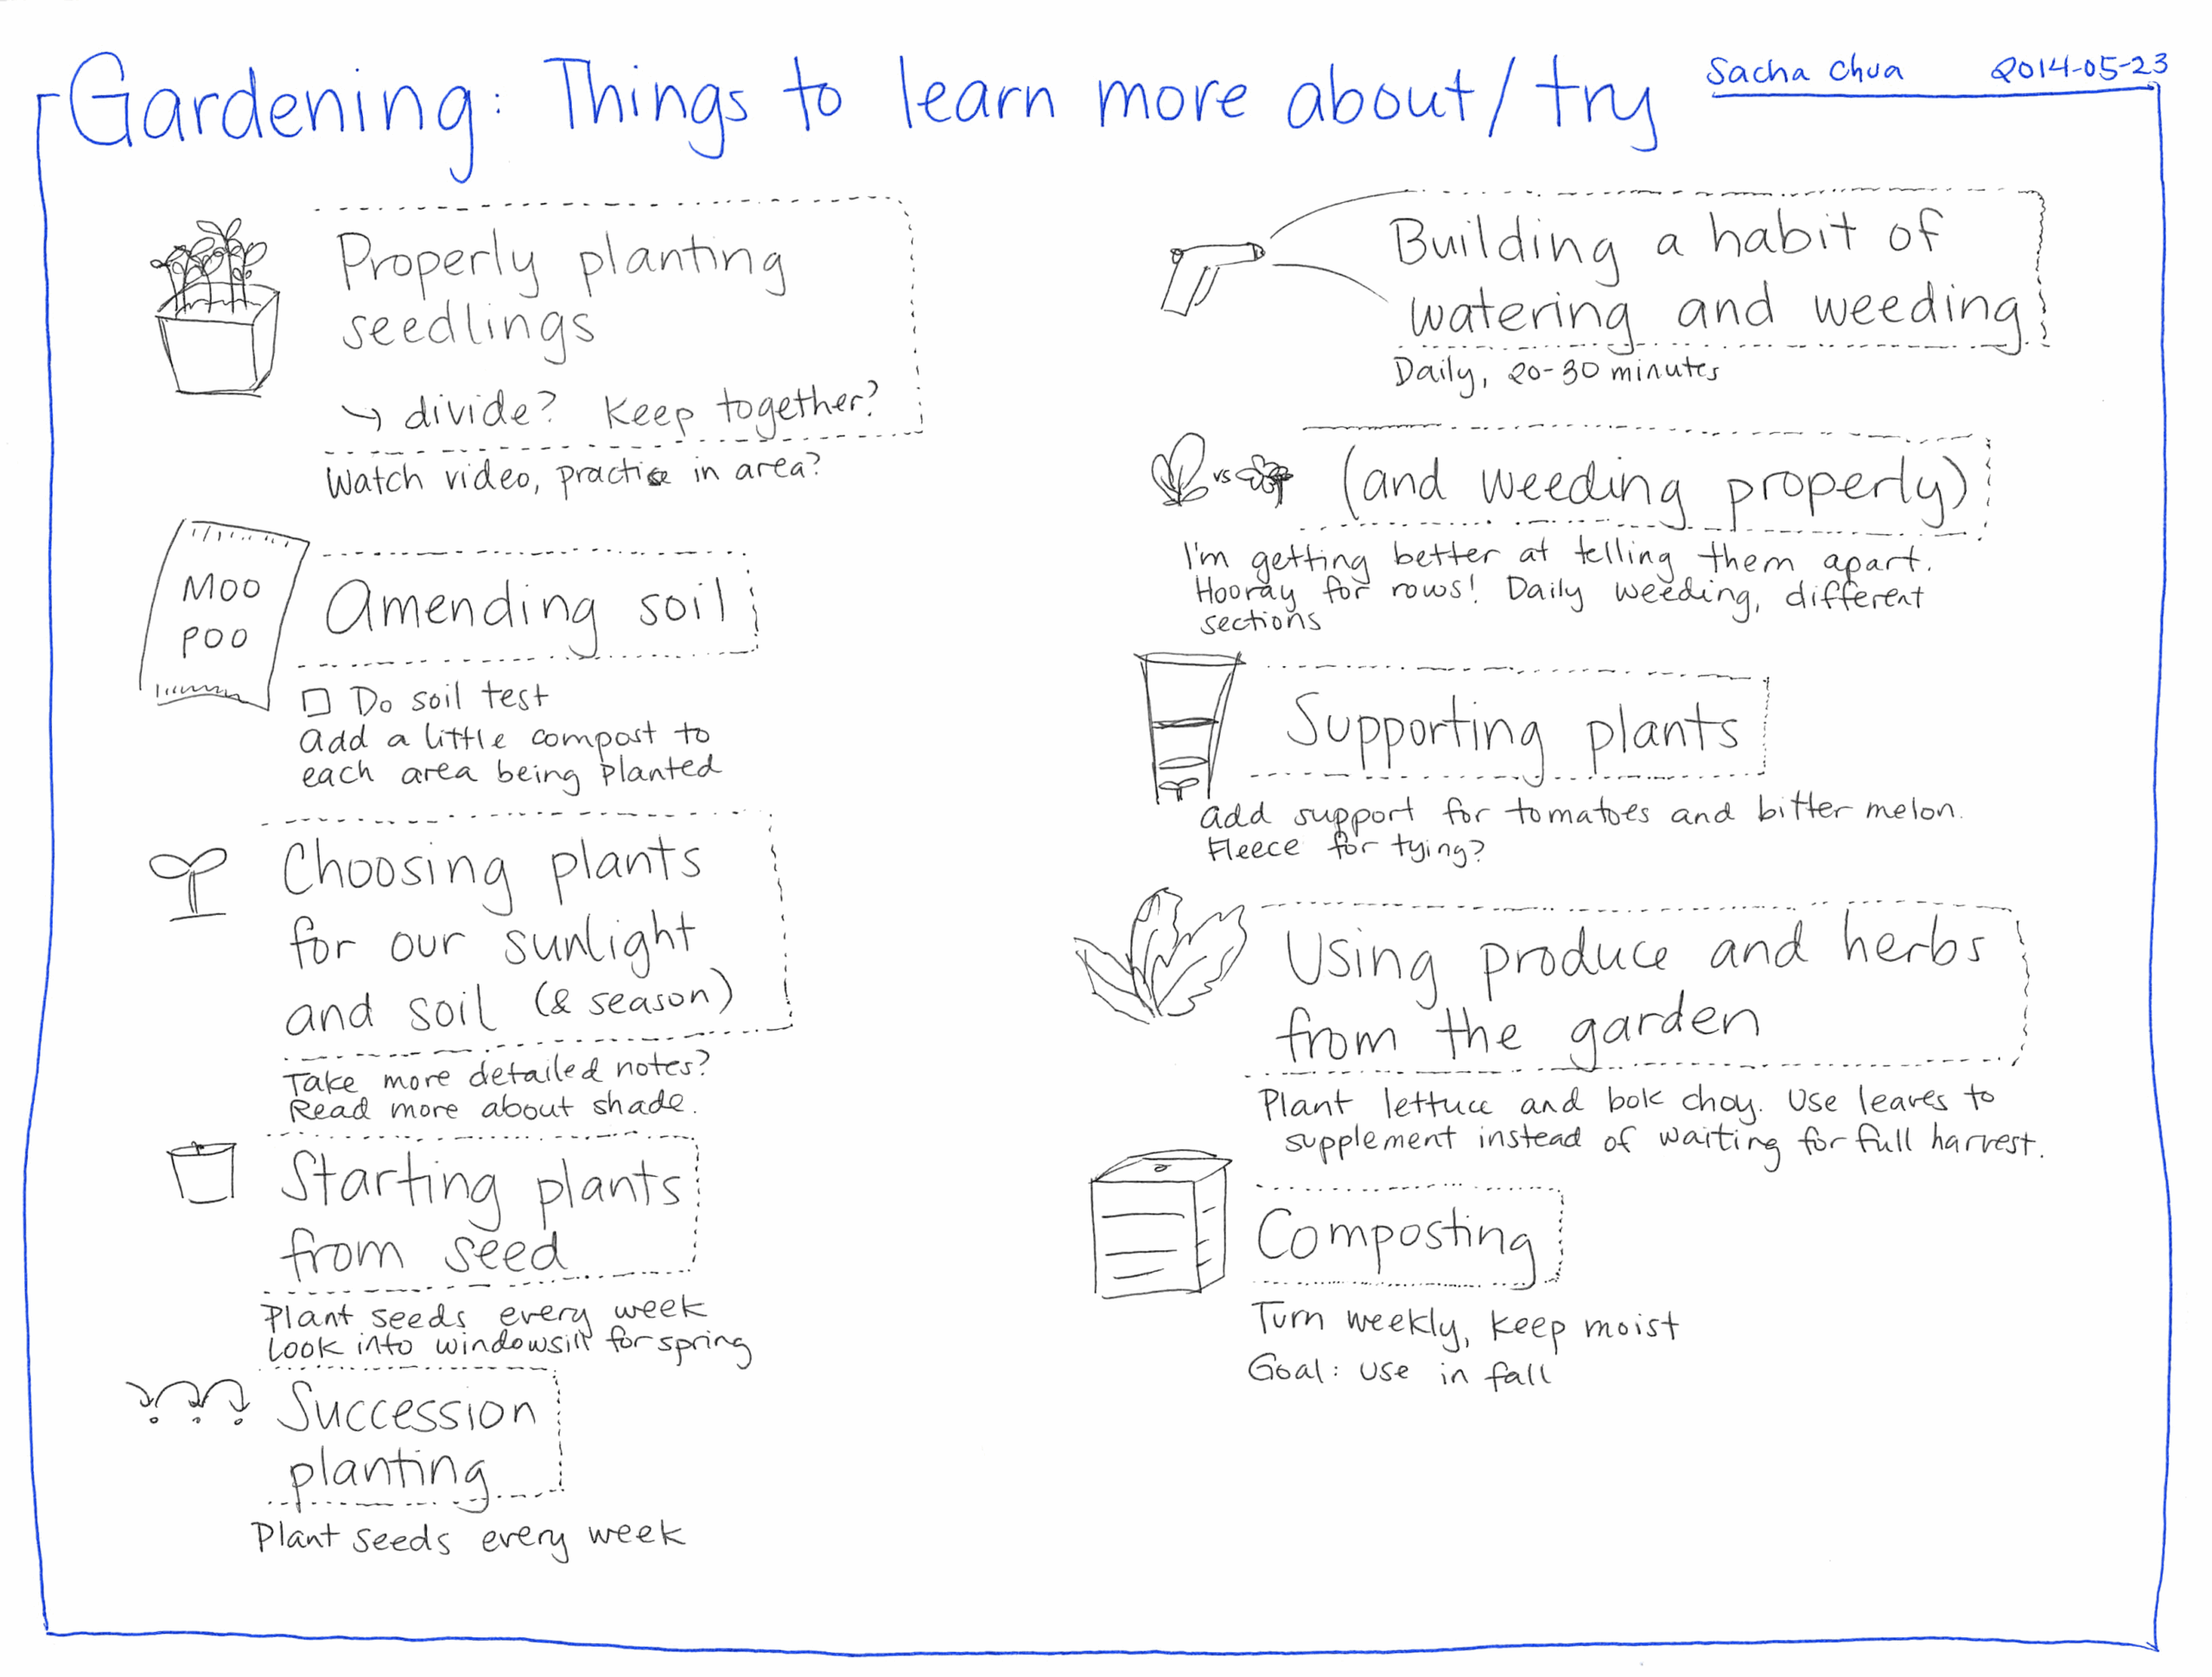 Gardening: Things to learn more about/try
Sacha Chua 2014-05-23
Properly planting
seedlings
↪ divide? Keep together?
Watch video, practise in area?
MOO
POO
Amending soil
☐ Do soil test
Add a little compost to
each area being planted
Choosing plants
for our sunlight
and soil (& season)
Take more detailed notes?
Read more about shade.
Starting plants
from seed
Plant seeds every week
Look into windowsill for spring
Succession
planting
Plant seeds every week
Building a habit of
watering and weeding
Daily, 20-30 minutes
vs
(and weeding properly)
I'm getting better at telling them apart.
Hooray for rows! Daily weeding, different
sections
Supporting plants
Add support for tomatoes and bitter melon.
Fleece for tying?
Using produce and herbs
from the garden
Plant lettuce and bok choy. Use leaves to
supplement instead of waiting for full harvest.
Composting
Turn weekly, keep moist
Goal: use in fall